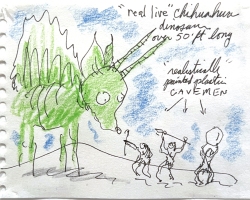 "real live" chihuahua
dinosaur
over 50' ft long
"realistically
painted plastic"
CAVEMEN